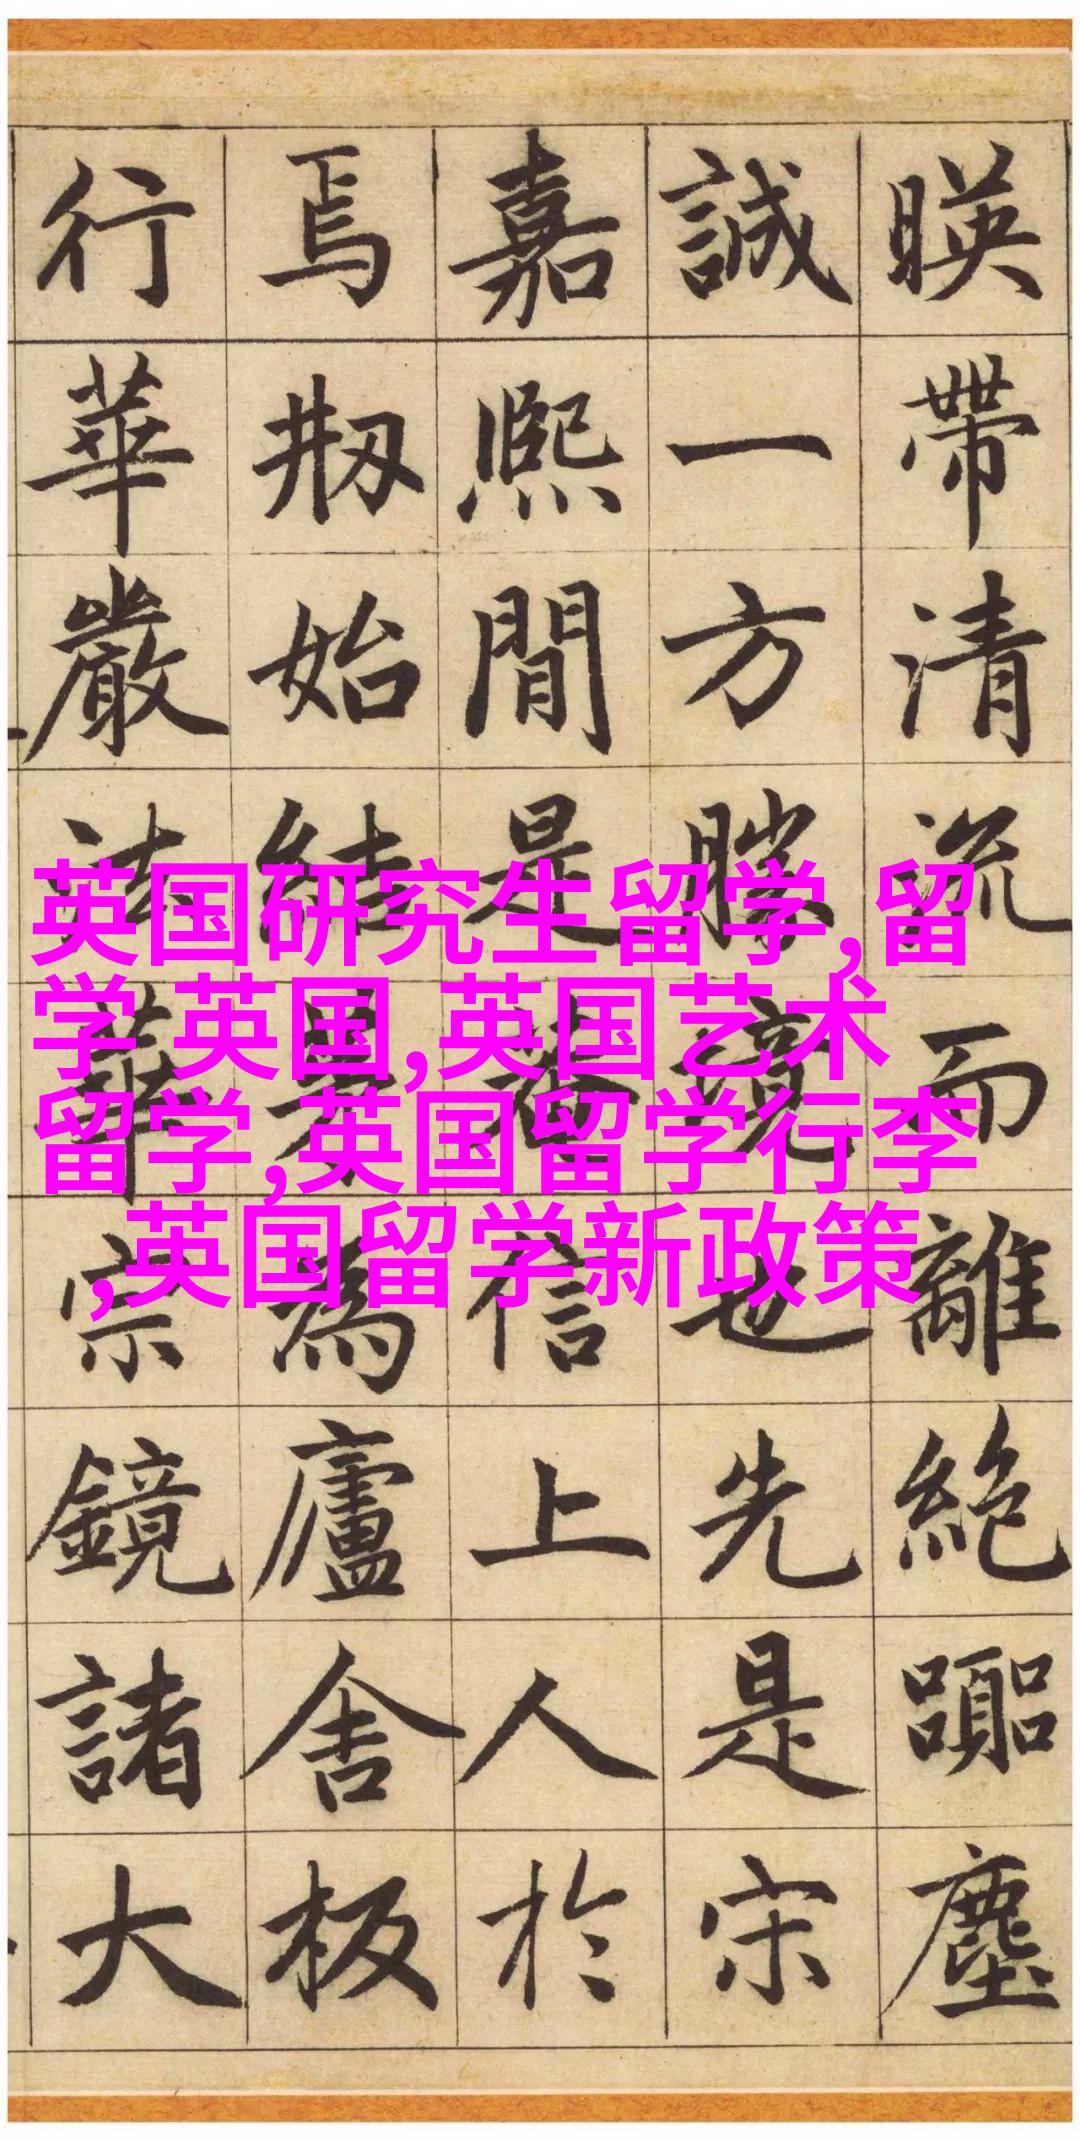 暎帶清流而離絕嚻塵
誠一方勝境也先是宋
嘉熙間是菴信上人於
焉刱始結茅為廬舍板
行華嚴法華宗鏡諸大
英国研究生留学,留
学 英国,英国艺术
留学,英国留学行李
,英国留学新政策